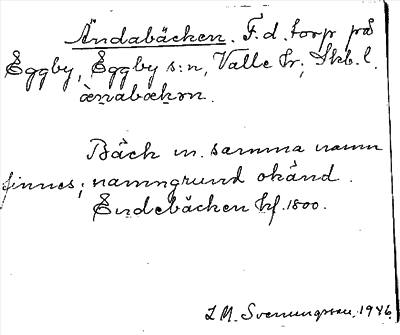 Ändabäcken. F.d. torp på
Eggby, Eggby s:n, Valle hr; Skb. l.
Bäck m. samma namn
finnes; namngrund okänd.
Endebäcken kf. 1800.
1946.